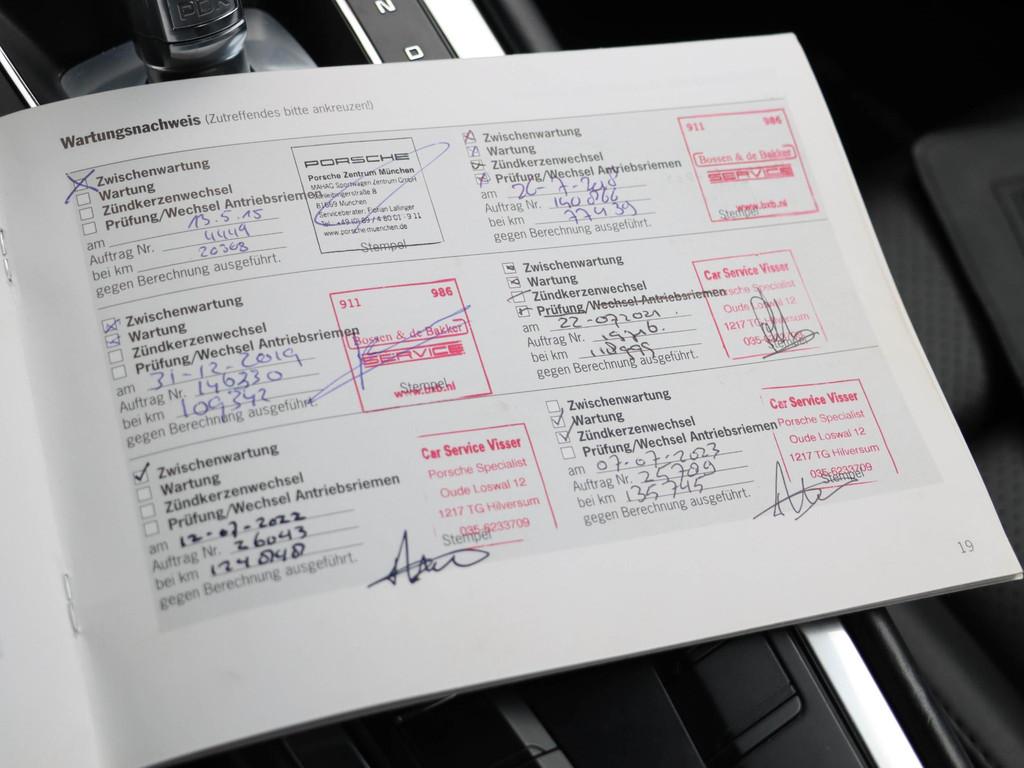 PDK
N
D
Wartungsnachweis (Zutreffendes bitte ankreuzen!)
Zwischenwartung
Wartung
Zündkerzenwechsel
Prüfung/Wechsel Antriebsriemen
am 13.5.15
Auftrag Nr. 4449
bei km 20368
gegen Berechnung ausgeführt.
PORSCHE
Porsche Zentrum München
MAHAG Sportwagen Zentrum GmbH
81669 München
Serviceberater: Florian Lallinger
www.porsche-muenchen.de
Stempel
Zwischenwartung
Wartung
Zündkerzenwechsel
Prüfung/Wechsel Antriebsriemen
am
Auftrag Nr. 140866
bei km 77439
gegen Berechnung ausgeführt.
911 986
Bossen & de Bakker
SERVICE
www.bxb.nl
Stempel
Zwischenwartung
Wartung
Zündkerzenwechsel
Prüfung/Wechsel Antriebsriemen
am 31-12-2019
Auftrag Nr. 146330
bei km 109342
gegen Berechnung ausgeführt.
911 986
Bossen & de Bakker
SERVICE
Stempel
www.bxb.nl
Zwischenwartung
Wartung
Zündkerzenwechsel
Prüfung/Wechsel Antriebsriemen
am 22-072021
Auftrag Nr.
bei km 118995
gegen Berechnung ausgeführt.
Car Service Visser
Porsche Specialist
Oude Loswal 12
1217 TG Hilversum
Stempel
Zwischenwartung
Wartung
Zündkerzenwechsel
Prüfung/Wechsel Antriebsriemen
am 12-07-2022
Auftrag Nr. 26043
bei km 124848
gegen Berechnung ausgeführt.
Car Service Visser
Porsche Specialist
Oude Loswal 12
1217 TG Hilversum
035-6233709
Stempel
Zwischenwartung
Wartung
Zündkerzenwechsel
Prüfung/Wechsel Antriebsriemen
am 07-07-2023
Auftrag Nr. 25789
bei km 135745
gegen Berechnung ausgeführt.
Car Service Visser
Porsche Specialist
Oude Loswal 12
1217 TG Hilversum
035-6233709
Stempel
19